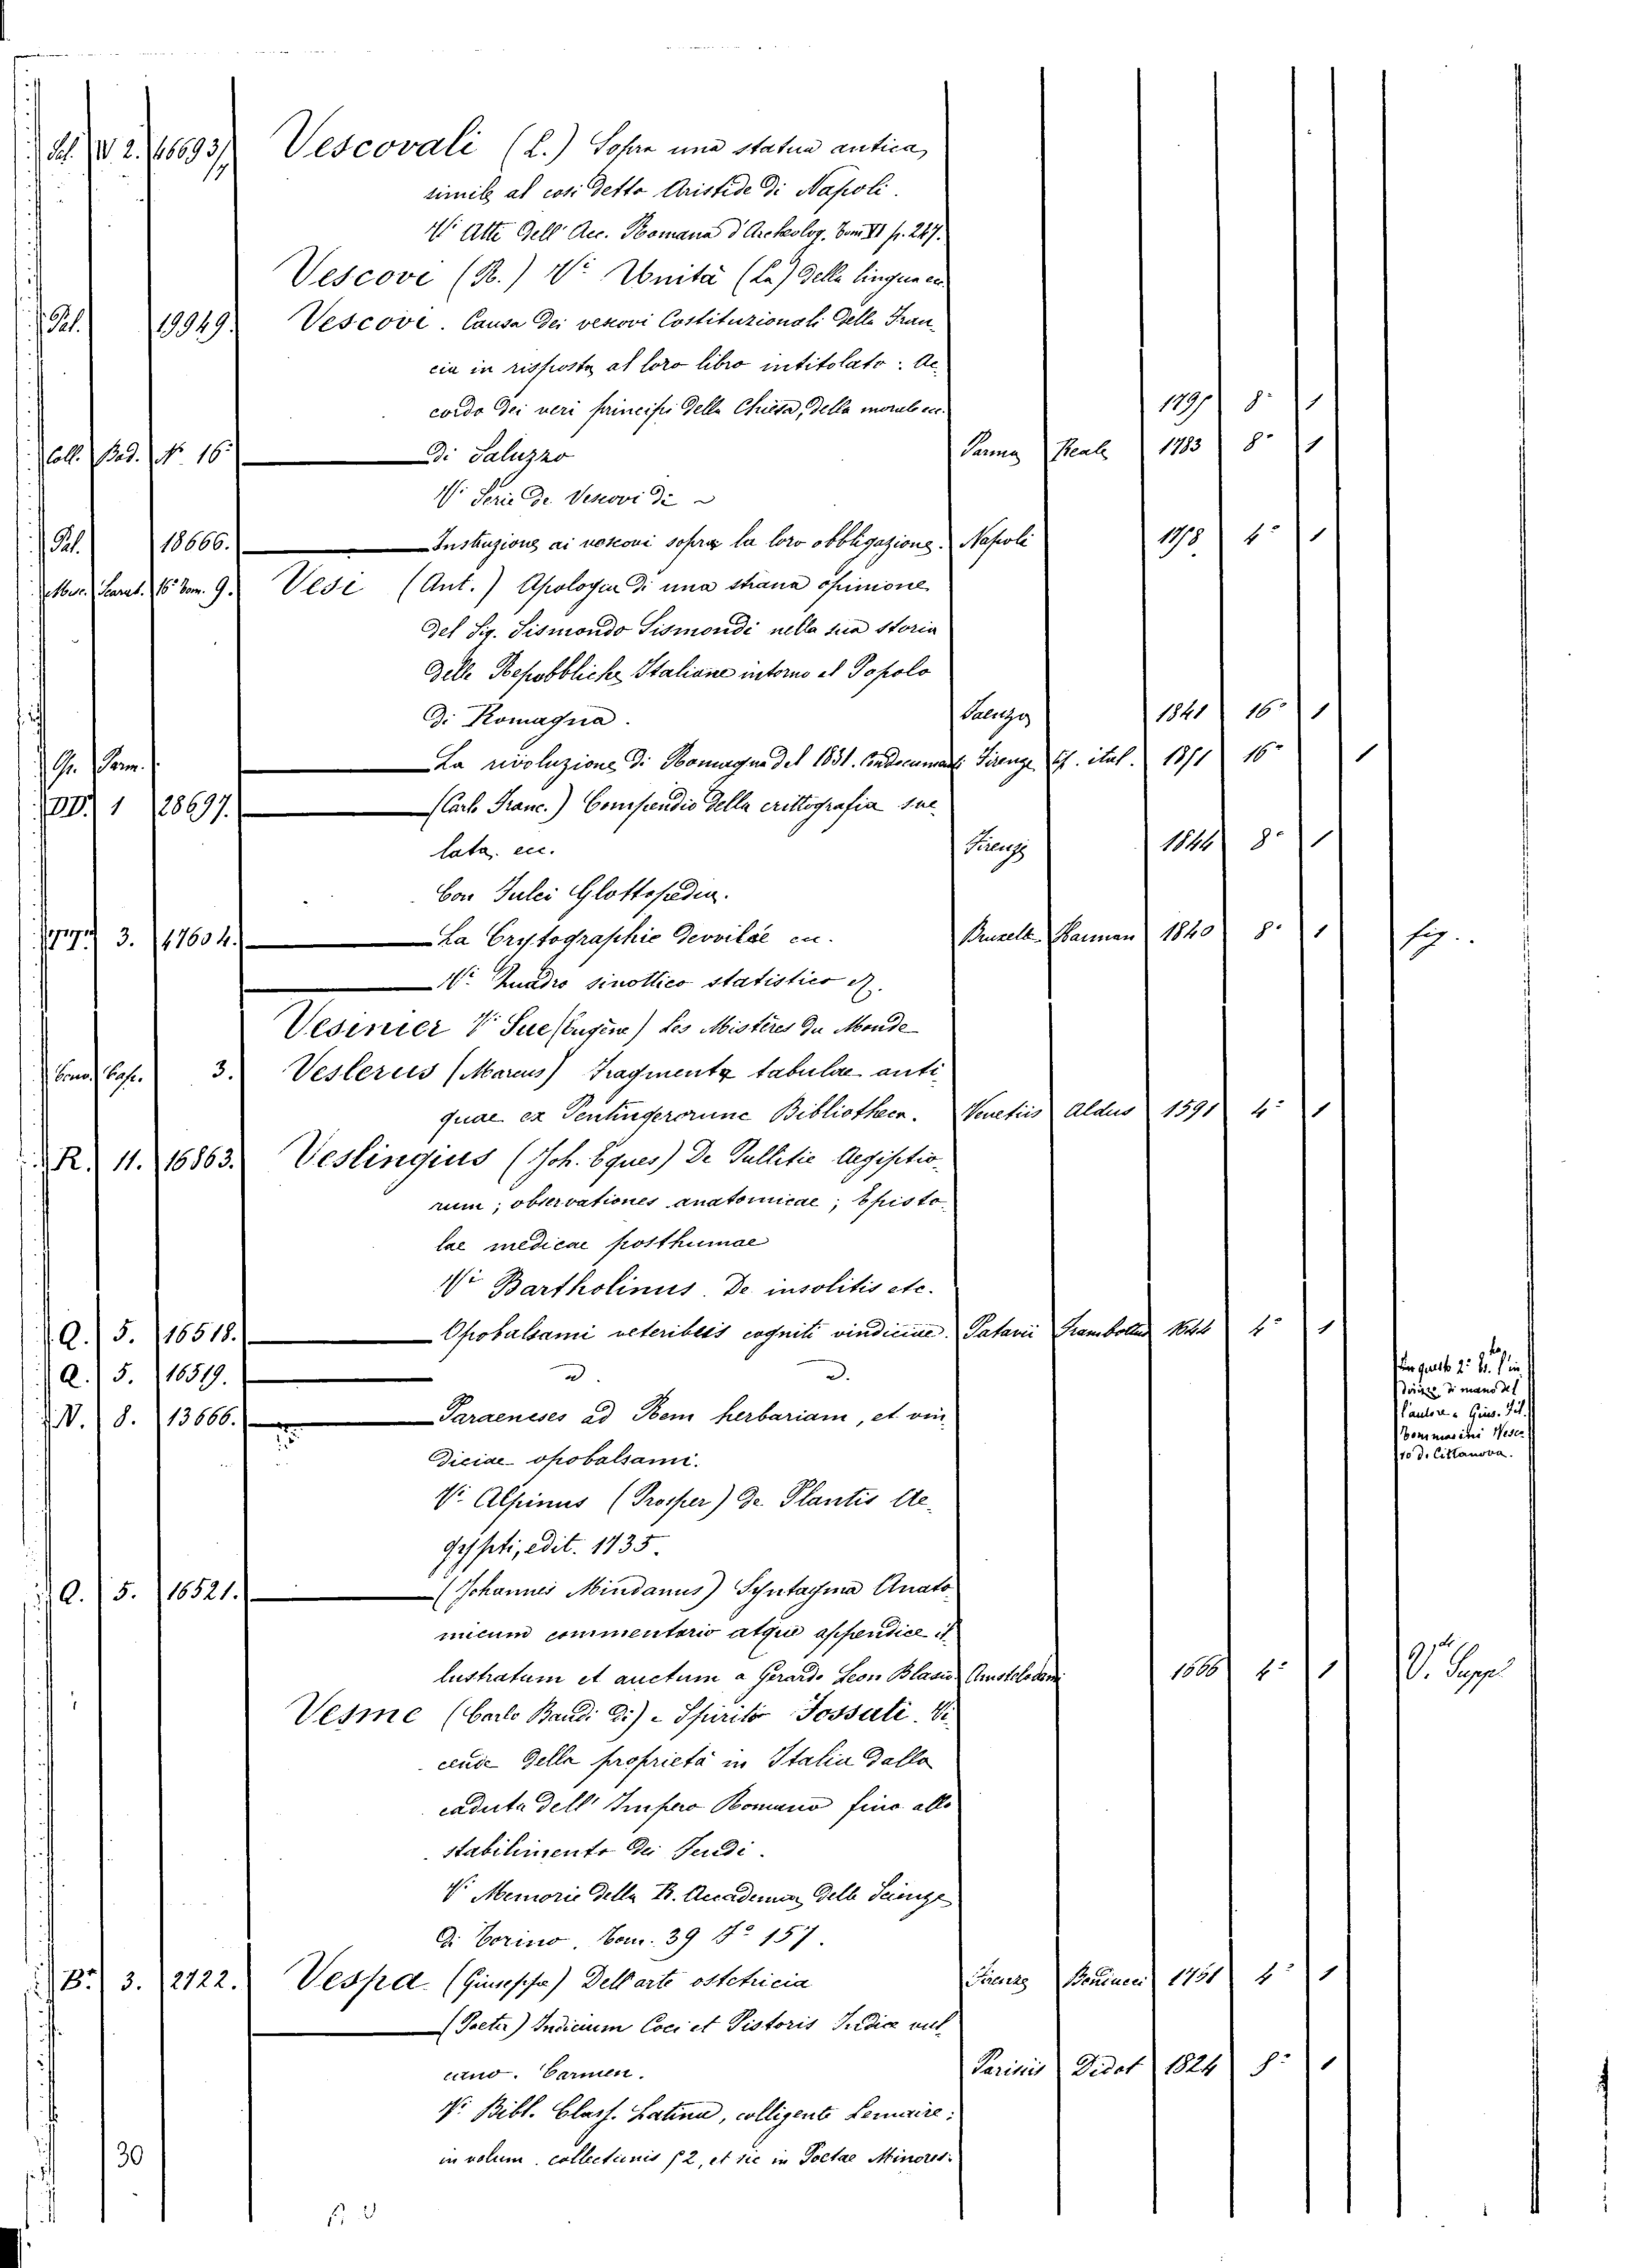 Pal. W. 2. 16693/7 Vescovali (L.) Sopra una statua antica,
simile al così detto Aristide di Napoli.
V. Atti dell' Acc. Romana d'Archeolog. Tom VI p. 247.
Vescovi (B.) V. Unità (La) della lingua ec.
Pal. 19949. Vescovi. Causa dei vescovi Costituzionali della Fran-
cia in risposta al loro libro intitolato: Ac-
cordo dei veri principii della Chiesa, della morale ec. 8° 1
Coll. Bod. N° 16 Di Saluzzo Parma Reale 1783 8° 1
V. Serie de Vescovi di
Pal. 18666. Instruzione ai vescovi sopra la loro obbligazione. Napoli 4° 1
Misc. Scarab. 16 Tom. 9. Vesi (Ant.) Apologia di una strana opinione
del Sig. Sismondo Sismondi nella sua storia
delle Repubbliche Italiane intorno al Popolo
di Romagna. Faenza 1841 16° 1
Gr. Parm. La rivoluzione di Romagna del 1831. Condocumenti Firenze Tip. ital. 1851 16° 1
DD. 1 28697. (Carlo Franc.) Compendio della crittografia sve-
lata. ec. Firenze 1844 8° 1
Con Julei Glottopedia.
3. 47604. La Cryptographie devoilée ec. Bruxelle Hauman 1840 8° 1 fig.
V. Quadro sinottico statistico &.
Vesinier V. Sue (Eugène) Les Mistères du Monde
Conv. Capp. 3. Veslerus (Marcus) Fragmenta tabulae anti-
quae ex Pentingerorune Bibliotheca. Venetiis Aldus 1591 4° 1
R. 11. 16863. Veslingius (Joh. Eques) De Pullitie Aegiptio-
rum; observationes anatomicae; Episto-
lae medicae posthumae
V. Bartholinus. De insolitis etc.
Q. 5. 16518. Opobalsami veteribus cogniti vindiciae. Patavii Frambottus 1644 4° 1
Q. 5. 16519. d. d.
N. 8. 13666. Paraeneses ad Rem herbariam, et vin-
diciae opobalsami.
V. Alpinus (Prosper) de Plantis Ae-
gypti, edit. 1735.
Q. 5. 16521. (Johannes Mindanus) Syntagma Anato-
micum commentario atque appendice il-
lustratum et auctum a Gerardo Leon Blasio Amstelodami 1666 4° 1 V. Supp.
Vesme (Carlo Baudi di) e Spirito Fossati. Vi-
cende della proprietà in Italia dalla
caduta dell' Impero Romano fino allo
stabilimento dei Feudi.
V. Memorie della R. Accademia delle Scienze
di Torino. Tom. 39 p. 157.
B. 3. 2122. Vespa (Giuseppe) Dell'arte ostetricia Firenze Bonducci 1751 4° 1
(Poeta) Indicium Coci et Pistoris Iudice vul-
cano. Carmen. Parisiis Didot 1824 8° 1
V. Bibl. Class. Latina, colligente Lemaire:
in volum. collectionis 52, et sic in Poetae Minores.
30